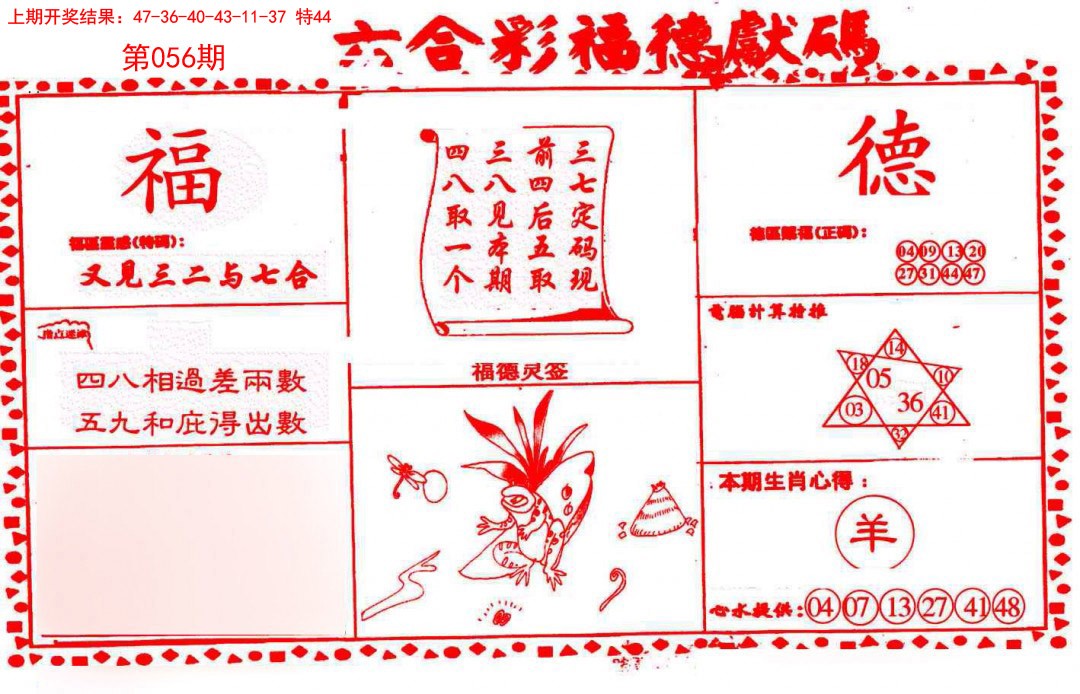 上期开奖结果：47-36-40-43-11-37 特44
第056期
六合彩福德獻碼
福
福區靈感(特碼):
又見三二与七合
四八相過差兩數
五九和庇得出數
三七定码现
前四后五取
三八见本期
四八取一个
福德灵签
德
德區賜福(正碼):
04 09 13 20
27 31 44 47
電腦計算抢推
14
18 10
05
36
03 41
32
本期生肖心得：
羊
心水提供:04 07 13 27 41 48